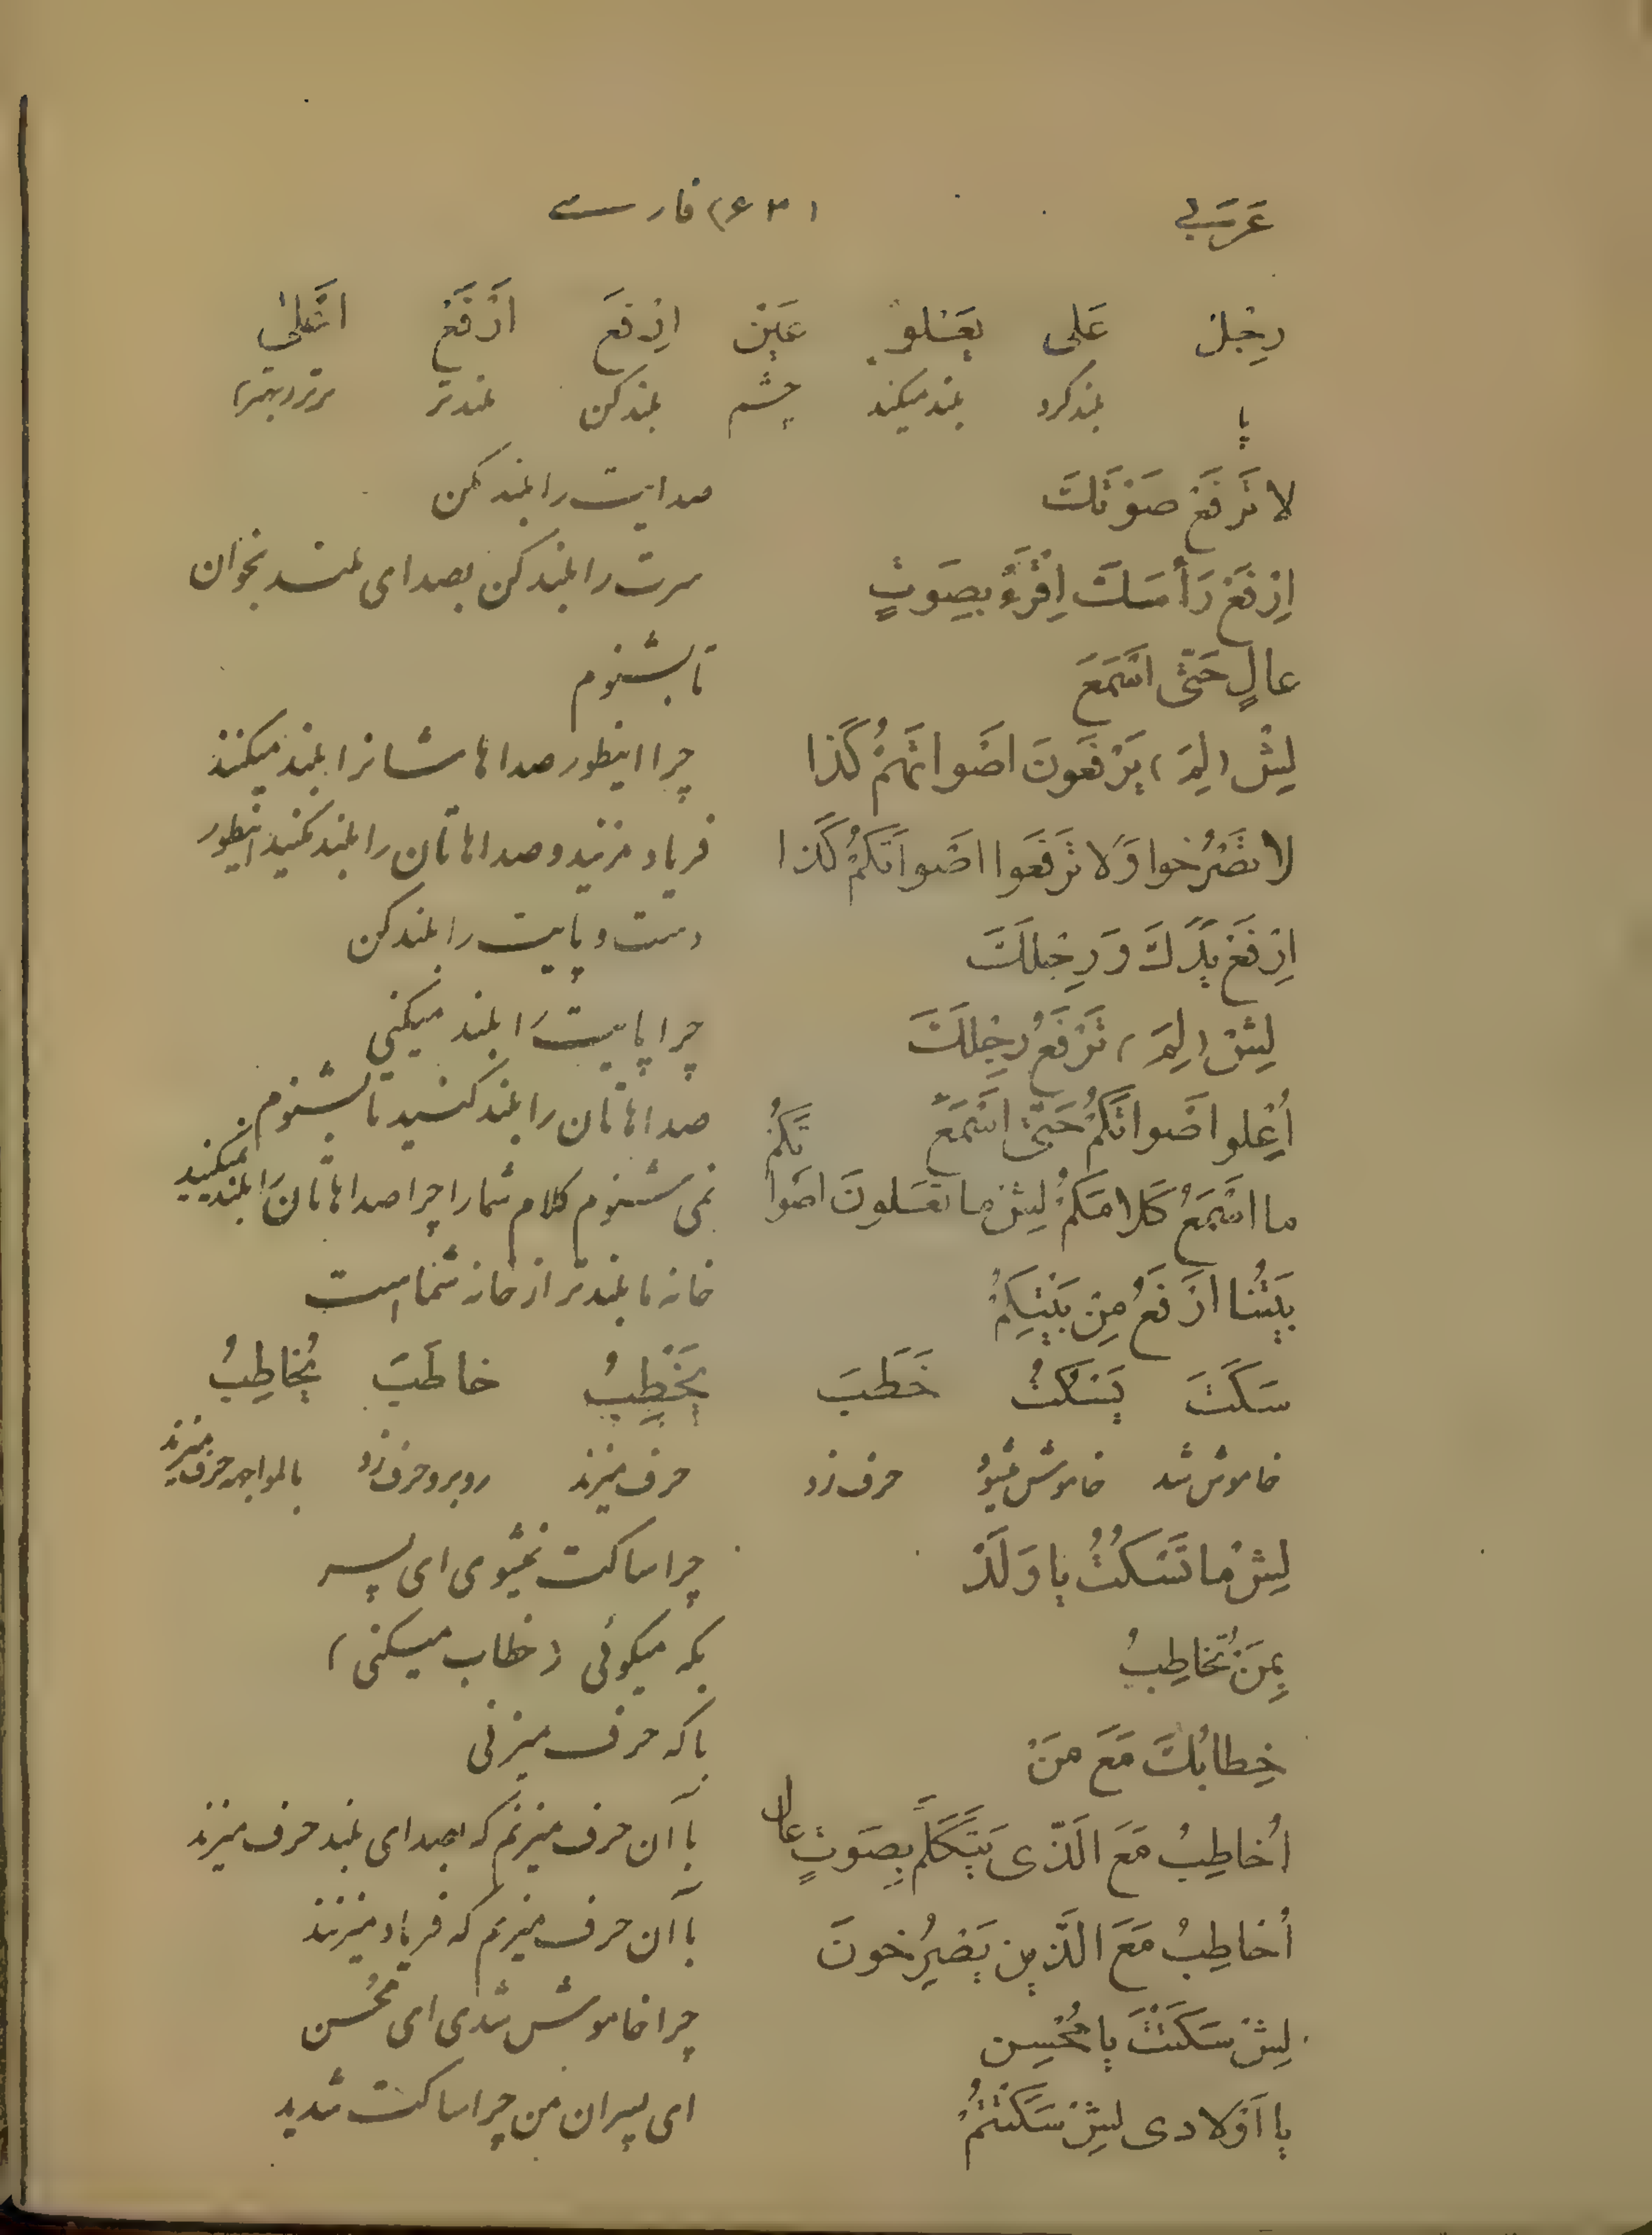 عَرَبی (۶۳) فارسی
رِجْل عَلی یَعْلو عَیْن اِرْفَعْ اَرْفَعْ اَعْلیٰ
پا بلند کرد بلند میکند چشم بلند کن بلندتر برتر (بهتر)
لا تَرْفَعْ صَوْتَكَ صدایت را بلند نکن
اِرْفَعْ رَأسَكَ اِقْرَءْ بِصَوتٍ سرت را بلند کن بصدای بلند بخوان
عالٍ حَتّی اَسْمَعَ تا بشنوم
لِیْش (لِمَ) یَرْفَعونَ اَصْواتَهُمْ كَذا چرا اینطور صداهاشانرا بلند میکنند
لا تَصْرُخوا وَلا تَرْفَعوا اَصْواتَكُمْ كَذا فریاد نزنید و صداهاتان را بلند نکنید اینطور
اِرْفَعْ یَدَكَ وَ رِجْلَكَ دست و پایت را بلند کن
لِیْش (لِمَ) تَرْفَعُ رِجْلَكَ چرا پایت را بلند میکنی
اُعْلوا اَصْواتَكُمْ حَتّی اَسْمَعَ صداهاتان را بلند کنید تا بشنوم
ما اَسْمَعُ كَلامَكُمْ لِیْش ما تَعْلونَ اَصْواتَكُمْ نمی شنوم کلام شما را چرا صداهاتان را بلند نمیکنید
بَیْتُنا اَرْفَعُ مِنْ بَیْتِكُمْ خانه ما بلندتر از خانه شما است
سَكَتَ یَسْكُتُ خَطَبَ یَخْطِبُ خاطَبَ یُخاطِبُ
خاموش شد خاموش میشود حرف زد حرف میزند روبرو حرف زد بالمواجهه حرف میزند
لِیْش ما تَسْكُتُ یا وَلَدْ چرا ساکت نمیشوی ای پسر
بِمَنْ تُخاطِبُ بکه میگوئی (خطاب میکنی)
خِطابُكَ مَعَ مَنْ با که حرف میزنی
اُخاطِبُ مَعَ الَّذی یَتَكَلَّمُ بِصَوتٍ عالٍ با آن حرف میزنم که بصدای بلند حرف میزند
اُخاطِبُ مَعَ الَّذینَ یَصْرُخونَ با آن حرف میزنم که فریاد میزنند
لِیْش سَكَتْتَ یا مُحْسِن چرا خاموش شدی ای مُحسن
یا اَوْلادی لِیْش سَكَتْتُمْ ای پسران من چرا ساکت شدید